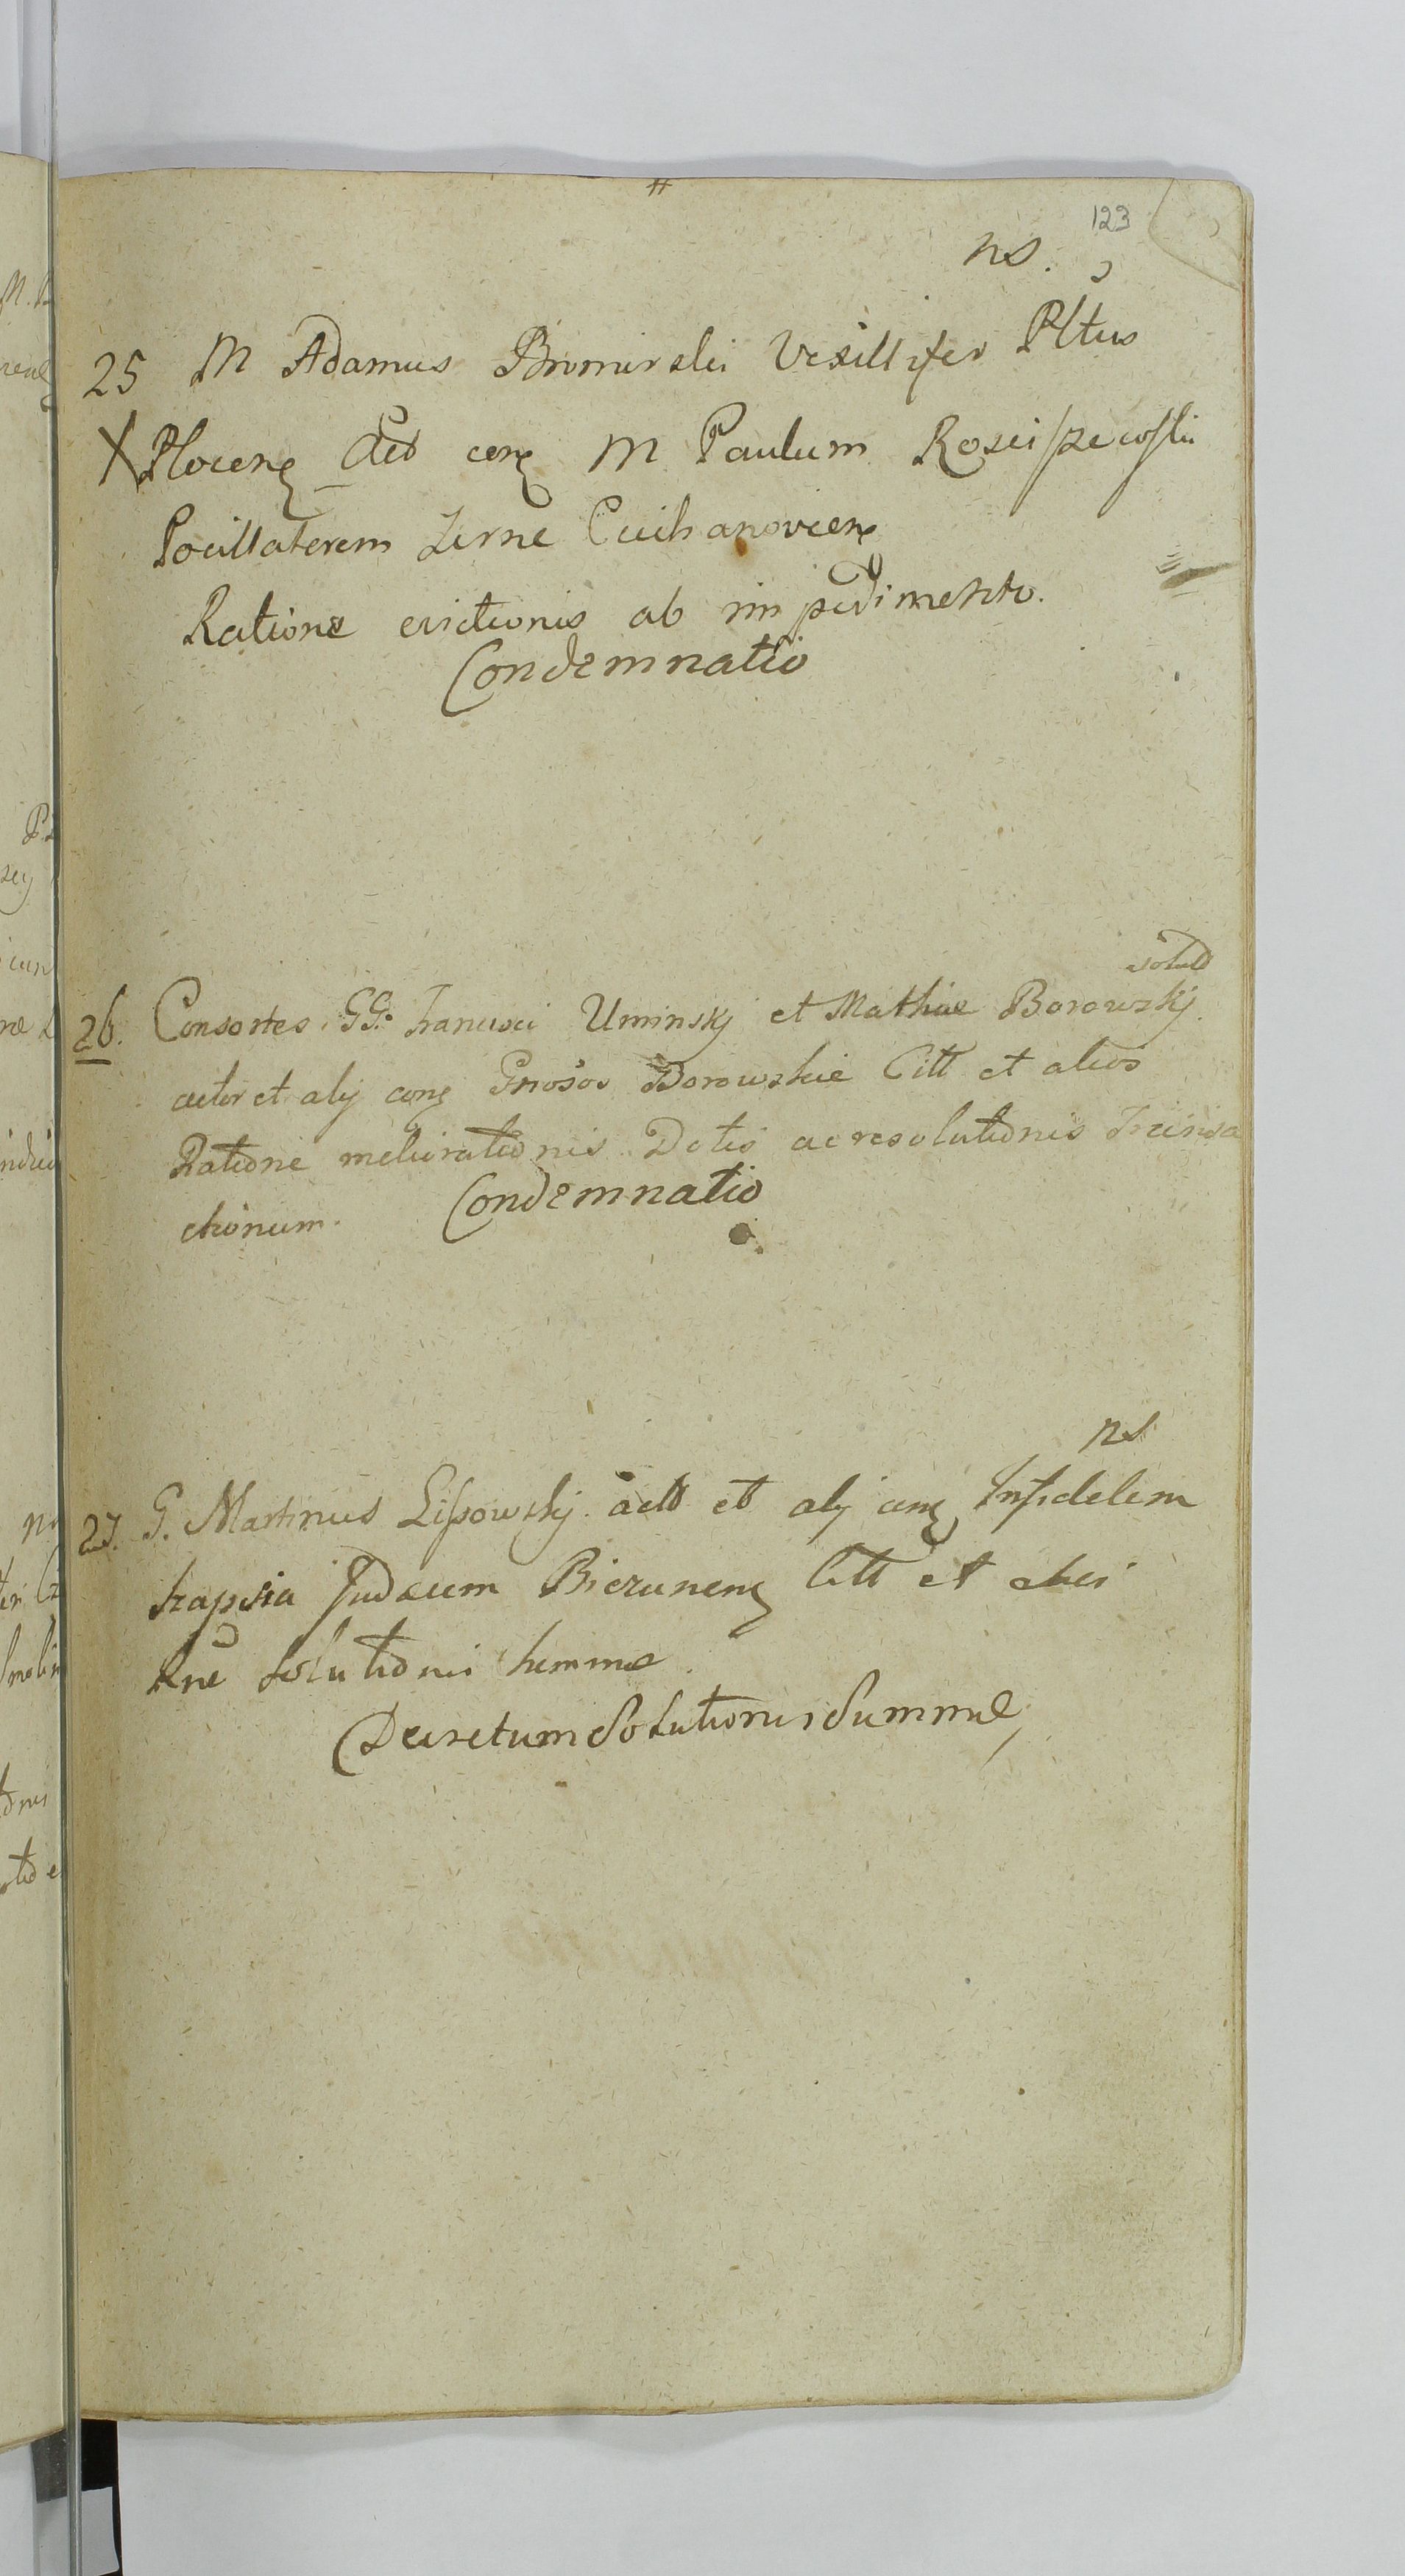 123
ns.
25 M Adamus Bromirski Vexillifer Pltus
Plocens Act cons M Paulum Rosciszewski
Pocillatorem Terrae Ciechanoviens
Ratione evictionis ab impedimento.
Condemnatio
solutd
26. Consortes GG. Francisci Uminskj et Mathiae Borowskj.
actor et alij cons Gnosos Borowskie Citt et alios
Ratione meliorationis Dotis ac resolutionis Transa
ctionum. Condemnatio
ns
27. G. Martinus Lipowskj actt et alij cons Infidelem
Judaeum Biezunens Citt et alies
Rne Solutionis summae
Decretum Solutionis Summae